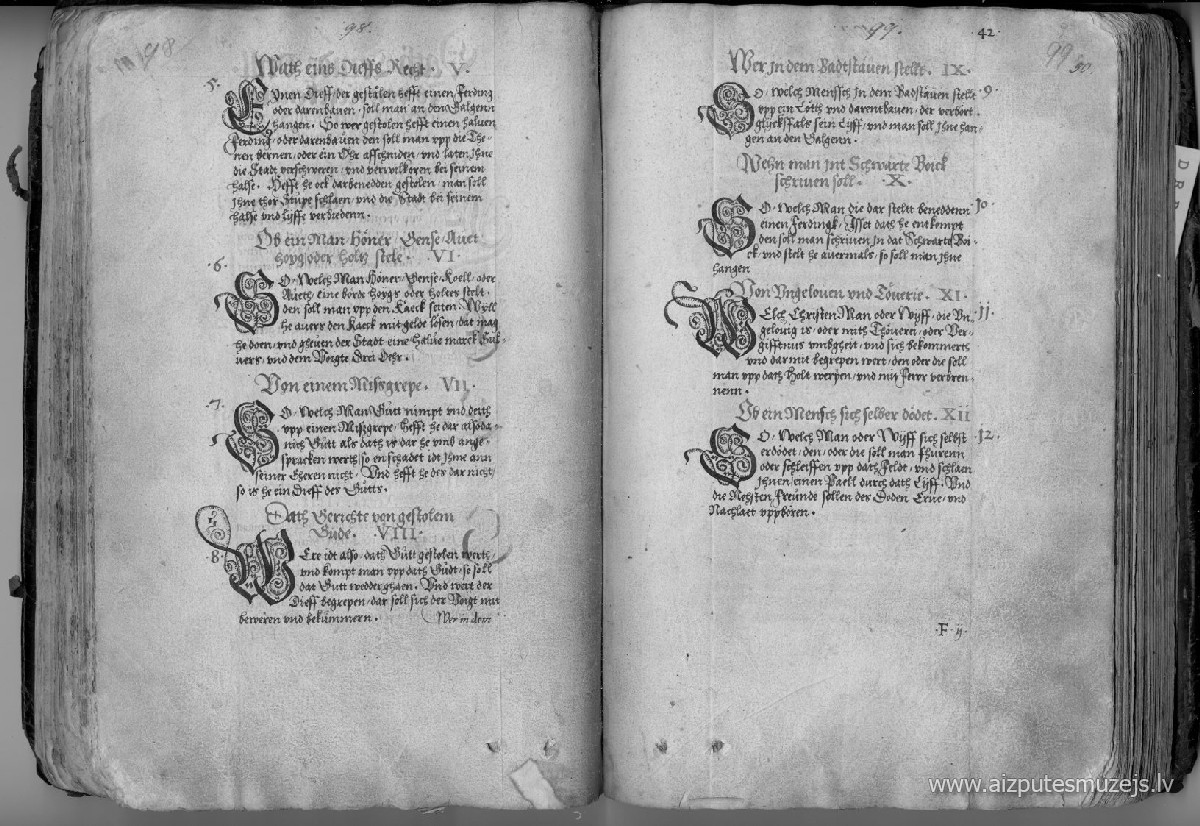 98.
98
Wath eins Dieffs Recht. V.
5.
EYnen Dieff der gestalen hefft einen Ferding
oder darenbauen, soll man an den Galgenn
hangen. So wer gestolen hefft einen haluen
Ferding, oder darenbauen den soll man vpp die The-
nen bernen, oder ein Ohr affschniden, vnd laten Jhne
die Stadt verschweren, vnd verwilkören bei seinem
halse. Hefft he ock darbenedden gestolen, man soll
Jhne thor Stupe schlaen, vnd die Stadt bei seinem
halse vnd lyffe verbiedenn.
Ob ein Man Höner, Gense, Auet
hoyg oder holtz stele. VI.
.6.
SO, Welch Man Höner, Gense, Koell, oder
Aueth, eine börde hoygs oder holtes stelt,
den soll man vpp den Kaeck setten. Will
he auers den Kaeck mit gelde lösen, dat mag
he doen, vnd gheuen der Stadt eine halue marck Sul-
uers, vnd dem Voigte Drei Oehr.
Von einem Missgrepe. VII.
.7.
SO, Welch Man Gutt nimpt vnd deith
vpp einen Missgrepe, hefft he dar alsoda-
nich Gutt als dath is dar he vmb ange-
spracken werth, so enschadet idt Jhme ann
seiner Eheren nicht. Vnd hefft he des dar nicht,
so is he ein Dieff des Gutts.
Dath Gerichte von gestolem
Gude. VIII.
.8.
WEre idt also, dath Gutt gestolen werth,
vnd kompt man vpp dath Gudt, so soll
dat Gutt wedder ghaen. Vnd wert der
Dieff begrepen, dar soll sich der Voigt mit
beweren vnd bekümmern.
Wer in dem
99.
42
99
50
Wer Jn dem Badtstauen stellt. IX.
SO, Welch Menssch Jn dem Badstauen stellt
.9.
vpp ein Loth vnd darenbauen, der verbört
glyckssfals sein Lyff, vnd man soll Jhne han-
gen an den Galgenn.
Wehn man jnt Schwarte Boick
schriuen soll. X.
SO, Welch Man die dar steltt beneddenn
.10.
einen Ferdingk, Jsset dath he entkompt
den soll man schriuen Jn dat Schwarte Boi-
ck, vnd stelt he auermals, so soll man Jhne
hangen
Von Vngelouen vnd Töuerie. XI.
WElch Christen Man oder Wyff, die Vn-
.11.
gelouig is, oder mith Thöuerei, oder Ver-
gifftnus vmbgheit, vnd sich bekommerts
vnd darmit begrepen wert, den oder die soll
man vpp dath Holt werpen, vnd mit Fewr verbren-
nenn.
Ob ein Mensch sich selber dödet. XII
SO, Welch Man oder Wyff sich selbst
.12.
erdödet, den, oder die soll man Fhurenn
oder schleiffen vpp dath Feldt, vnd schlaen
Jhnen, einen Paell durch dath Lyff. Vnd
die Nehisten Freunde sollen des Doden Erue, vnd
Nachlaet vppbören.
.F. ij.
www.aizputesmuzejs.lv